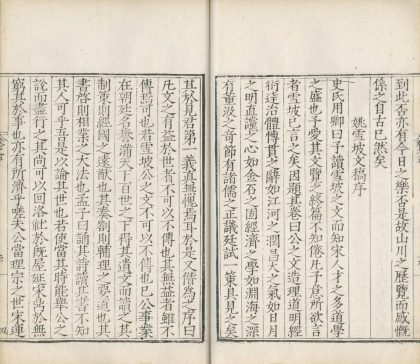 到此否亦有今日之景否是故山川之歷覽而感慨
係之自古已然矣
姚雪坡文稿序
史氏用卿曰予讀雪坡之文而知宋人才之多道學
之盛也予愛其文覽之終篇不知倦凡予意所欲言
者雪坡已言之矣因題其卷曰公之文造理道明經
術達治體傳其辭如江河之潤昌大之氣如日月
之明直諒之心如金石之固經濟之學如淵海之深
有董汲之奇節有諸儒之正議廷試一策具見之矣
其於見於君第一義直無愧焉耳於是又僭為之序曰
凡文之有益於世者不可以不傳也其無益者雖不
傳焉可也若雪坡公之文不可以不傳也已公事業
在朝廷名譽滿天下百世之下得其遺文而讀之
制策則經國之遠猷也其奏劄則輔理之要道也其
書啓則相業之大法也孟子曰誦其詩讀其書不知
其人可乎吾是以論其世也若使當其時能舉公之
說而盡行之其尚可以回洛社於既屋延宋鼎於無
窮其於事也亦有所濟乎嗟夫公當理宗之世宋運